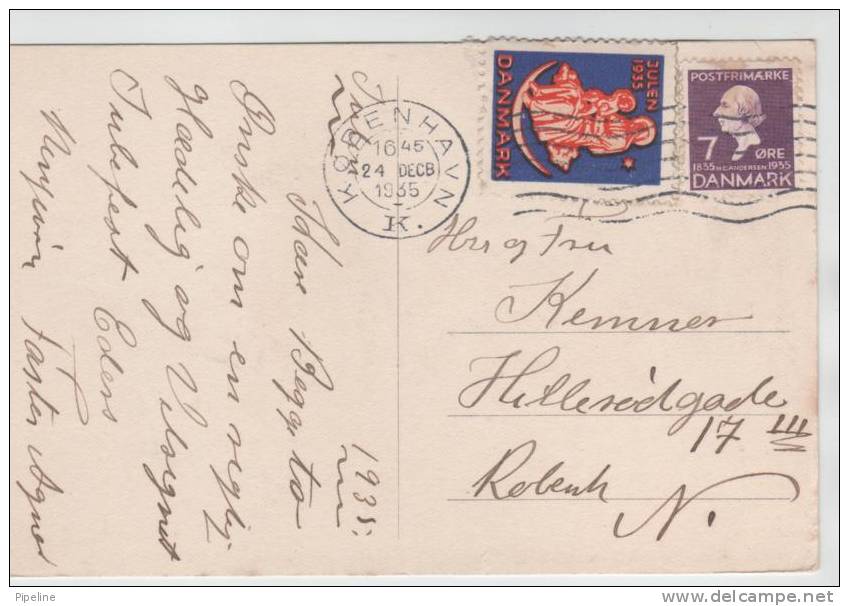 Julen 1935:
Kære Begge to
Ønske om en rigtig
Glædelig og Velsignet
Julefest Eders
Faster Agnes
KØBENHAVN
16 45
24 DECB
1935
K.
JULEN
1935
DANMARK
POSTFRIMÆRKE
7 ØRE
1835 H.C.ANDERSEN 1935
DANMARK
Hr og Fru
Kemner
Hillerødgade
17 III
Københ
N.
Pipeline
www.delcampe.net